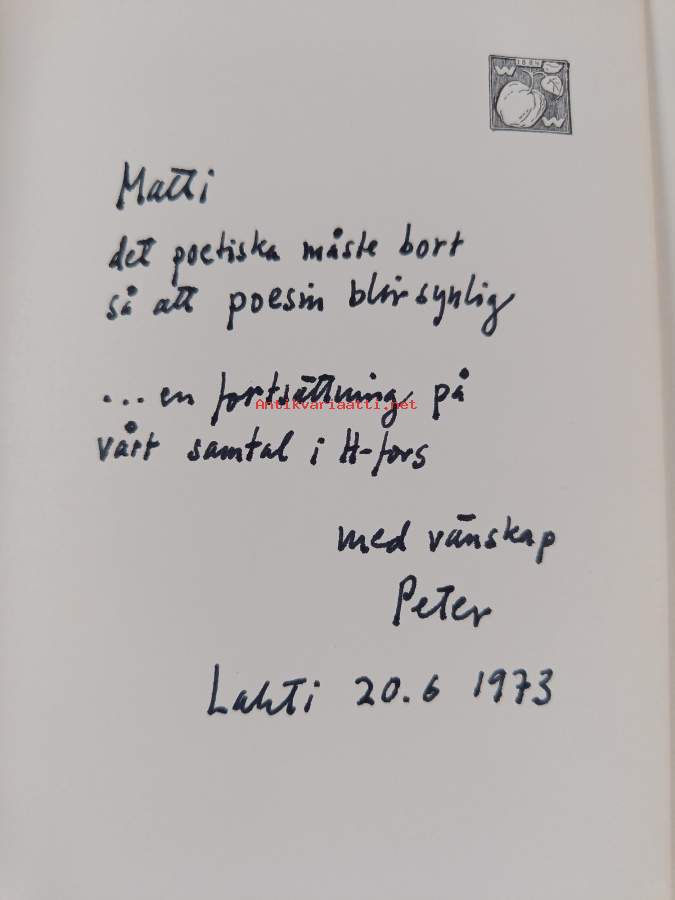 W 1884 W
Matti
det poetiska måste bort
så att poesin blir synlig
... en fortsättning på
Antikvariaatti.net
vårt samtal i H-fors
med vänskap
Peter
Lahti 20.6 1973